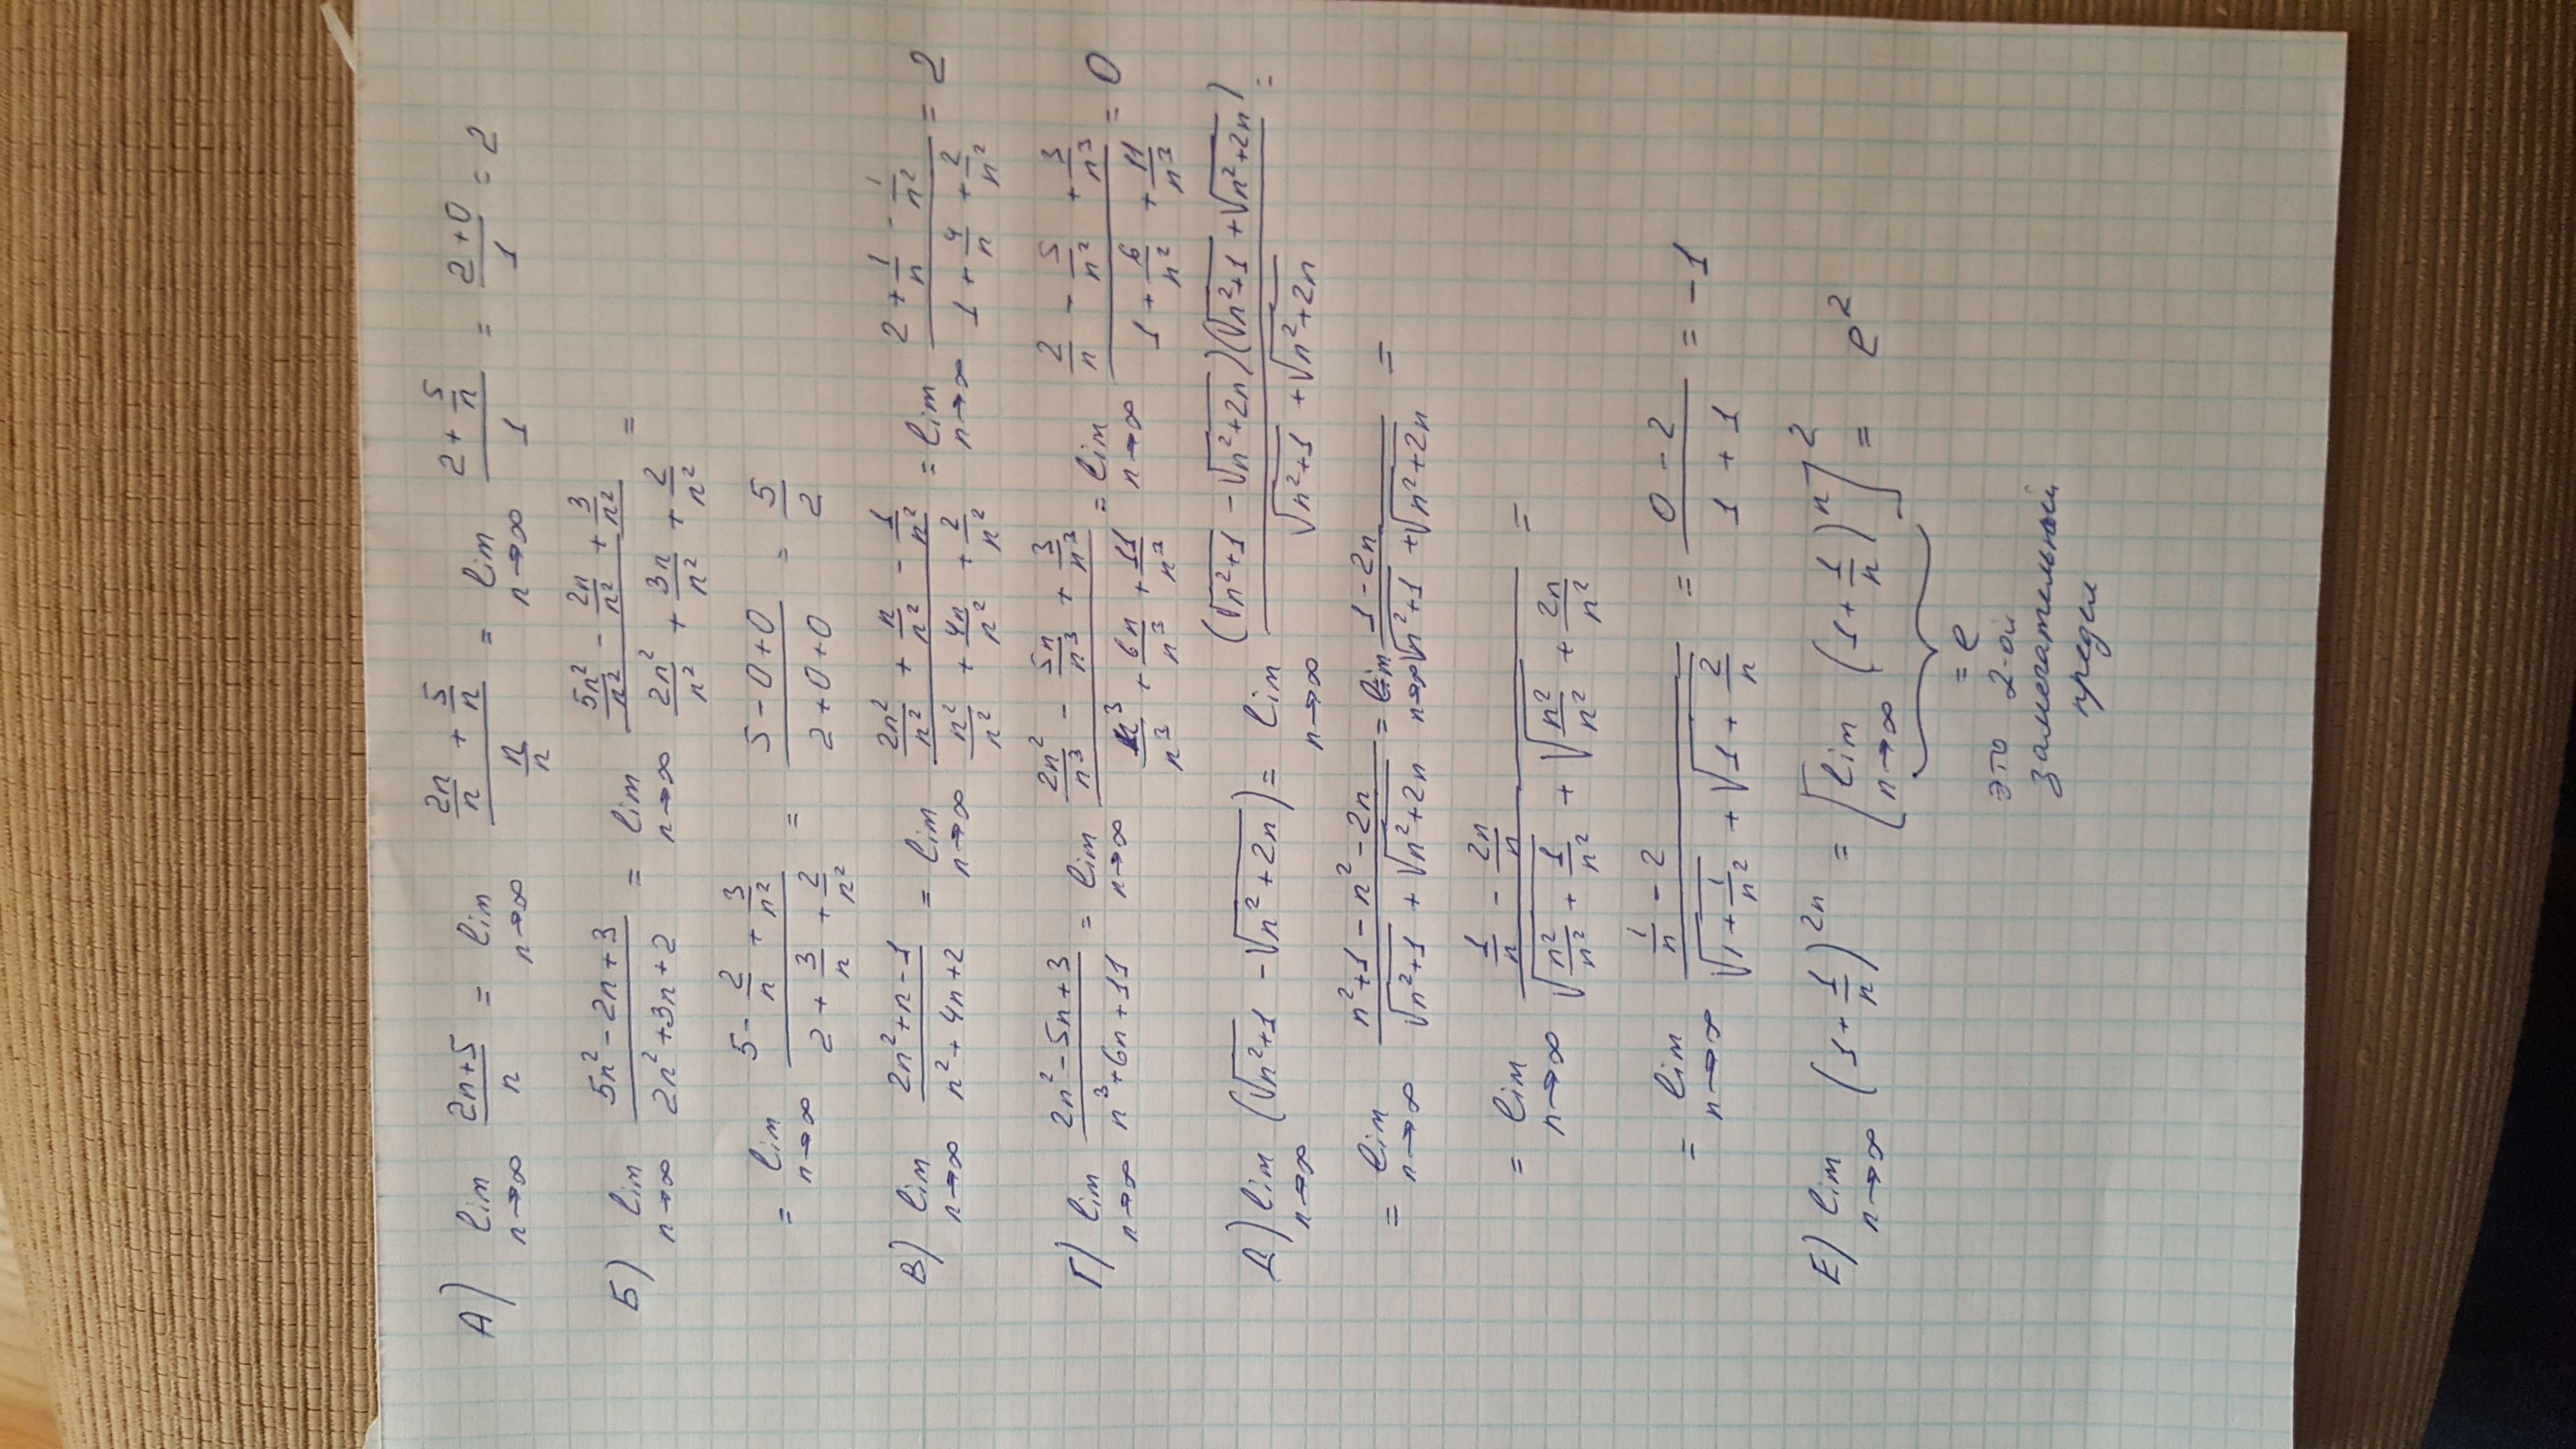 А) lim n→∞ (2n+5)/n = lim n→∞ (2n/n + 5/n)/(n/n) = lim n→∞ (2 + 5/n)/1 = (2+0)/1 = 2
Б) lim n→∞ (5n² - 2n + 3)/(2n² + 3n + 2) = lim n→∞ (5n²/n² - 2n/n² + 3/n²)/(2n²/n² + 3n/n² + 2/n²) =
= lim n→∞ (5 - 2/n + 3/n²)/(2 + 3/n + 2/n²) = (5 - 0 + 0)/(2 + 0 + 0) = 5/2
В) lim n→∞ (2n² + n - 1)/(n² + 4n + 2) = lim n→∞ (2n²/n² + n/n² - 1/n²)/(n²/n² + 4n/n² + 2/n²) = lim n→∞ (2 + 1/n - 1/n²)/(1 + 4/n + 2/n²) = 2
Г) lim n→∞ (2n² - 5n + 3)/(n³ + 6n + 11) = lim n→∞ (2n²/n³ - 5n/n³ + 3/n³)/(n³/n³ + 6n/n³ + 11/n³) = lim n→∞ (2/n - 5/n² + 3/n³)/(1 + 6/n² + 11/n³) = 0
Д) lim n→∞ (√(n²+1) - √(n²+2n)) = lim n→∞ (√(n²+1) - √(n²+2n))(√(n²+1) + √(n²+2n))/(√(n²+1) + √(n²+2n)) =
= lim n→∞ (n²+1 - n² - 2n)/(√(n²+1) + √(n²+2n)) = lim n→∞ (1 - 2n)/(√(n²+1) + √(n²+2n)) =
= lim n→∞ (1/n - 2n/n)/(√(n²/n² + 1/n²) + √(n²/n² + 2n/n²)) =
= lim n→∞ (1/n - 2)/(√(1 + 1/n²) + √(1 + 2/n)) = (0 - 2)/(1 + 1) = -1
Е) lim n→∞ (1 + 1/n)²ⁿ = [lim n→∞ (1 + 1/n)ⁿ]² = e²
= e
это 2-ой
замечательный
предел